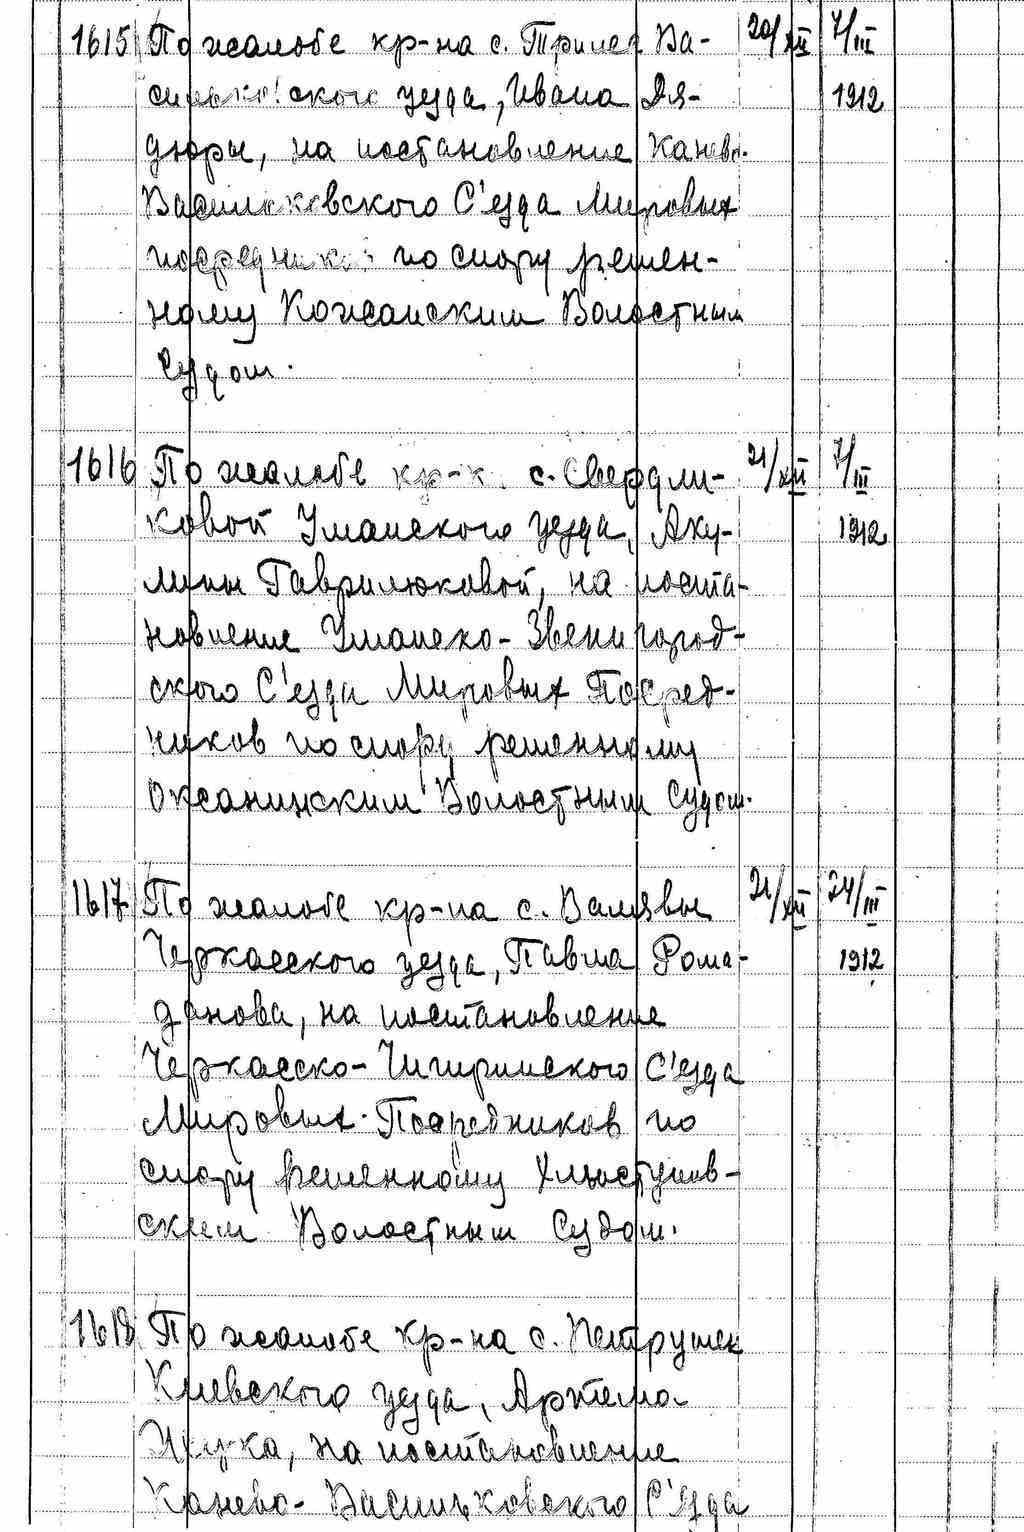 1615 По жалобе кр-на с. Трилес Ва- 20/XII 7/III
сильковского уезда, Ивана Дя- 1912
дюры, на постановление Канев.
Васильковского С'езда Мировых
посредников по спору решен-
ному Кожанским Волостным
Судом.
1616 По жалобе кр-к. с. Свердли- 21/XII 7/III
ковой Уманского уезда, Аку- 1912
лины Гаврилюковой, на поста-
новление Уманско-Звенигород-
ского С'езда Мировых Посред-
ников по спору решенному
Оксанинским Волостным Судом.
1617 По жалобе кр-на с. Валявы 21/XII 24/III
Черкасского уезда, Павла Рома- 1912
данова, на постановление
Черкасско-Чигиринского С'езда
Мировых Посредников по
спору решенному Хлыстунов-
ским Волостным Судом.
1618 По жалобе кр-на с. Петрушек
Киевского уезда, Артема
на постановление
Канево-Васильковского С'езда